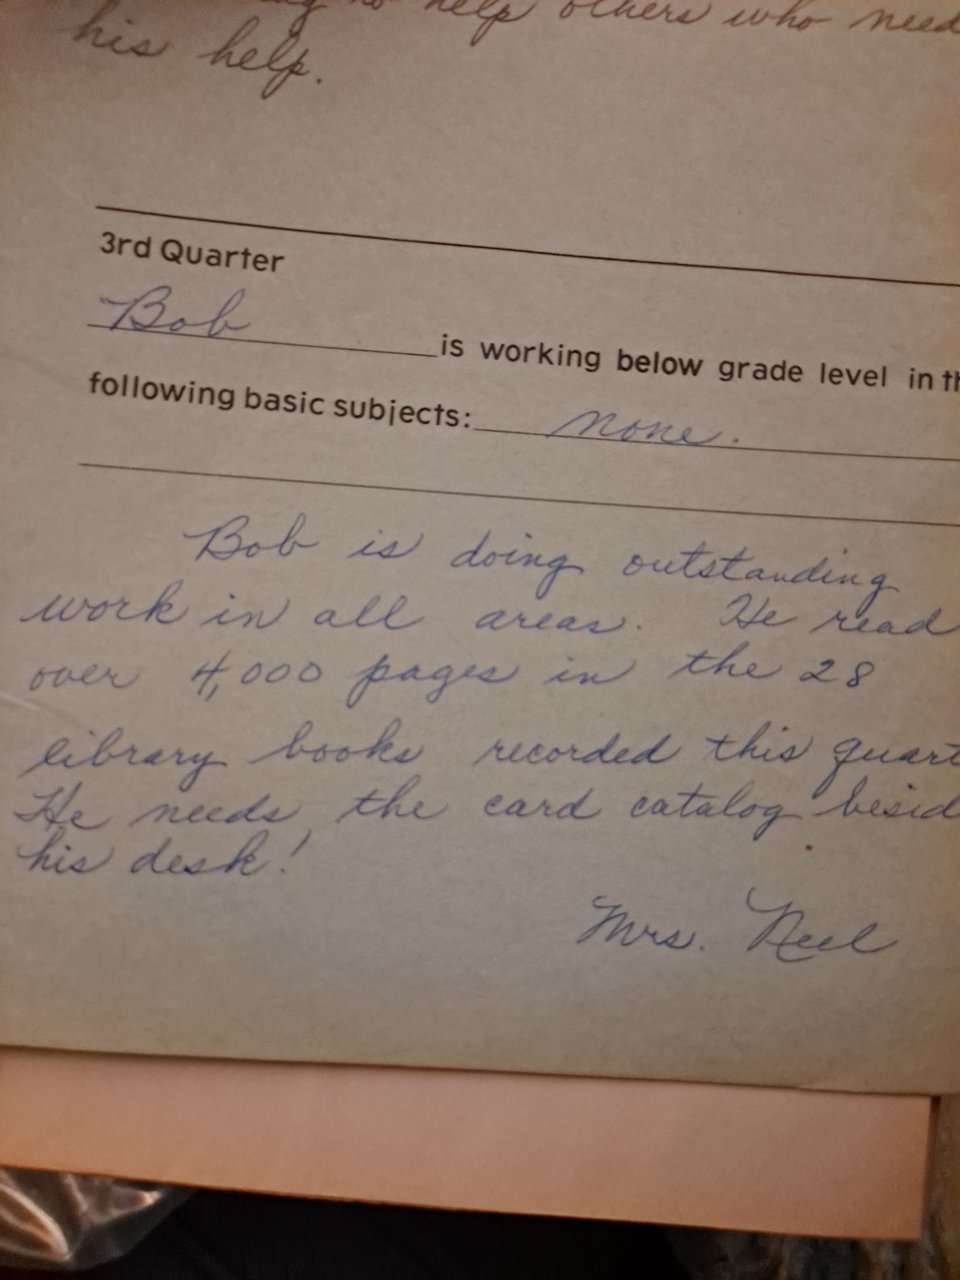 to help others who need
his help.
3rd Quarter
Bob is working below grade level in th
following basic subjects: none.
Bob is doing outstanding
work in all areas. He read
over 4,000 pages in the 28
library books recorded this quart
He needs the card catalog besid
his desk!
Mrs. Neel